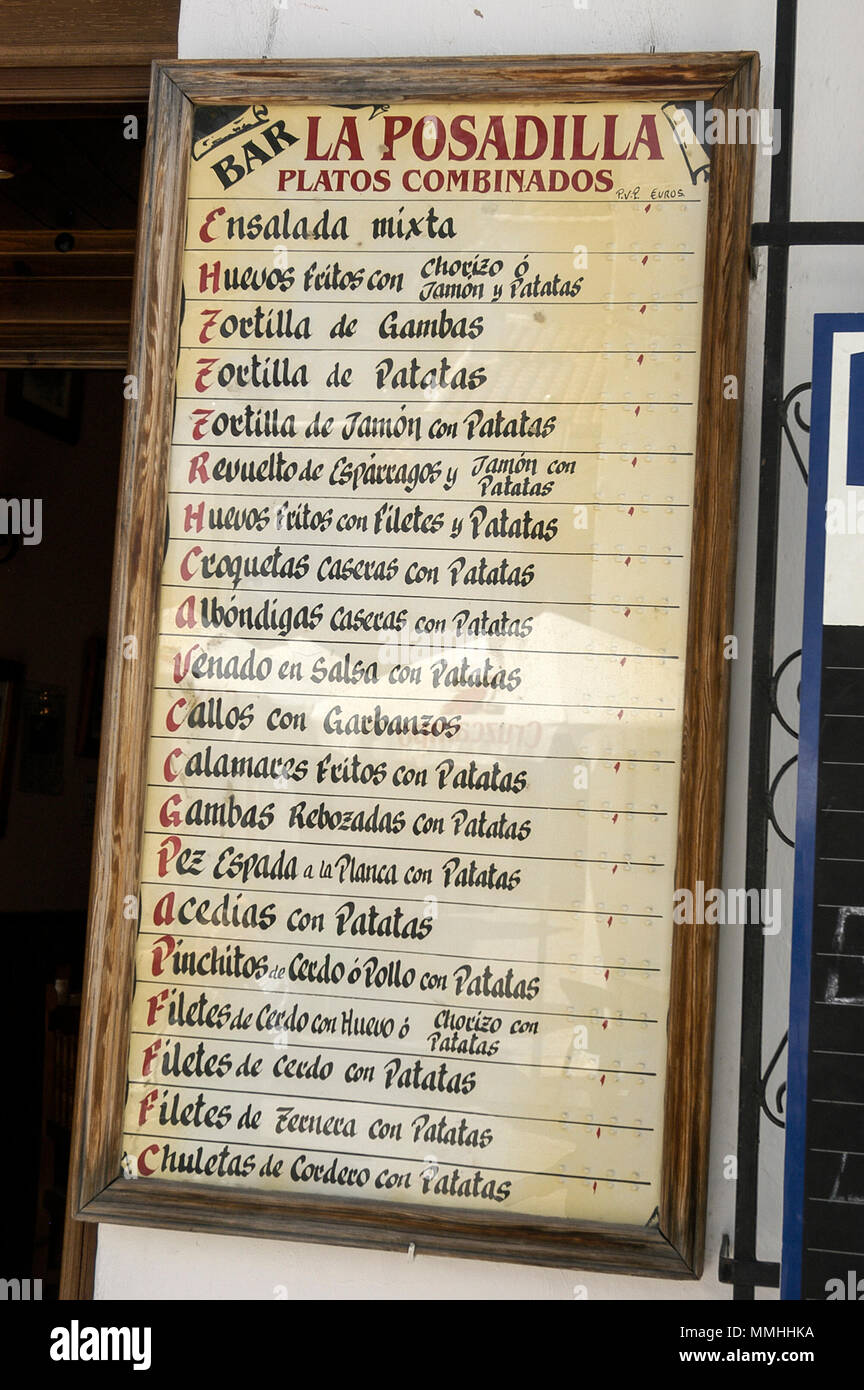 BAR LA POSADILLA
PLATOS COMBINADOS
P.V.P. EUROS
Ensalada mixta
Huevos fritos con Chorizo ó
Jamón y Patatas
Tortilla de Gambas
Tortilla de Patatas
Tortilla de Jamón con Patatas
Revuelto de Espárragos y Jamón con
Patatas
Huevos fritos con filetes y Patatas
Croquetas caseras con Patatas
Albóndigas caseras con Patatas
Venado en salsa con Patatas
Callos con Garbanzos
Cruzcampo
Calamares fritos con Patatas
Gambas Rebozadas con Patatas
Pez Espada a la Planca con Patatas
Acedias con Patatas
Pinchitos de Cerdo ó Pollo con Patatas
Filetes de Cerdo con Huevo ó Chorizo con
Patatas
Filetes de cerdo con Patatas
Filetes de Ternera con Patatas
Chuletas de Cordero con Patatas
alamy
Image ID: MMHHKA
www.alamy.com